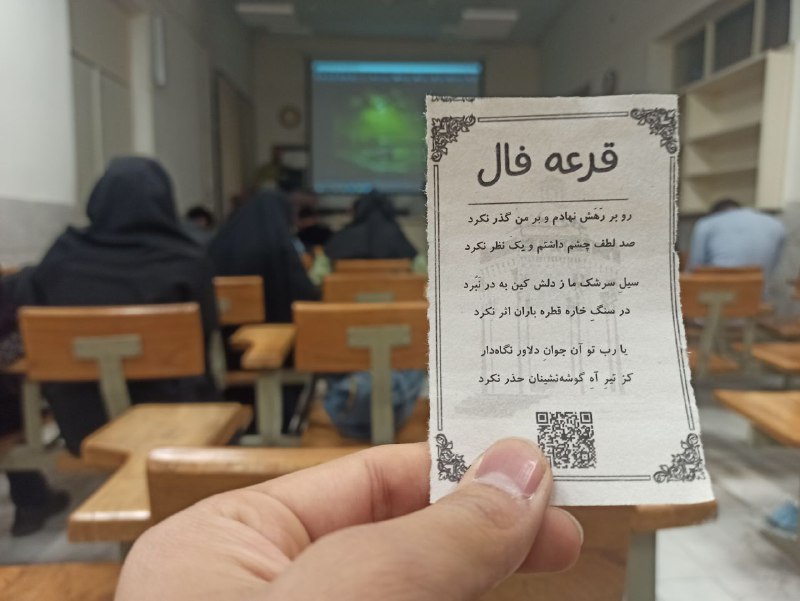 قرعه فال
رو بر رَهَش نهادم و بر من گذر نکرد
صد لطف چشم داشتم و یک نظر نکرد
سیلِ سرشک ما ز دلش کین به در نَبُرد
در سنگِ خاره قطره باران اثر نکرد
یا رب تو آن جوانِ دلاور نگاه‌دار
کز تیرِ آهِ گوشه‌نشینان حذر نکرد